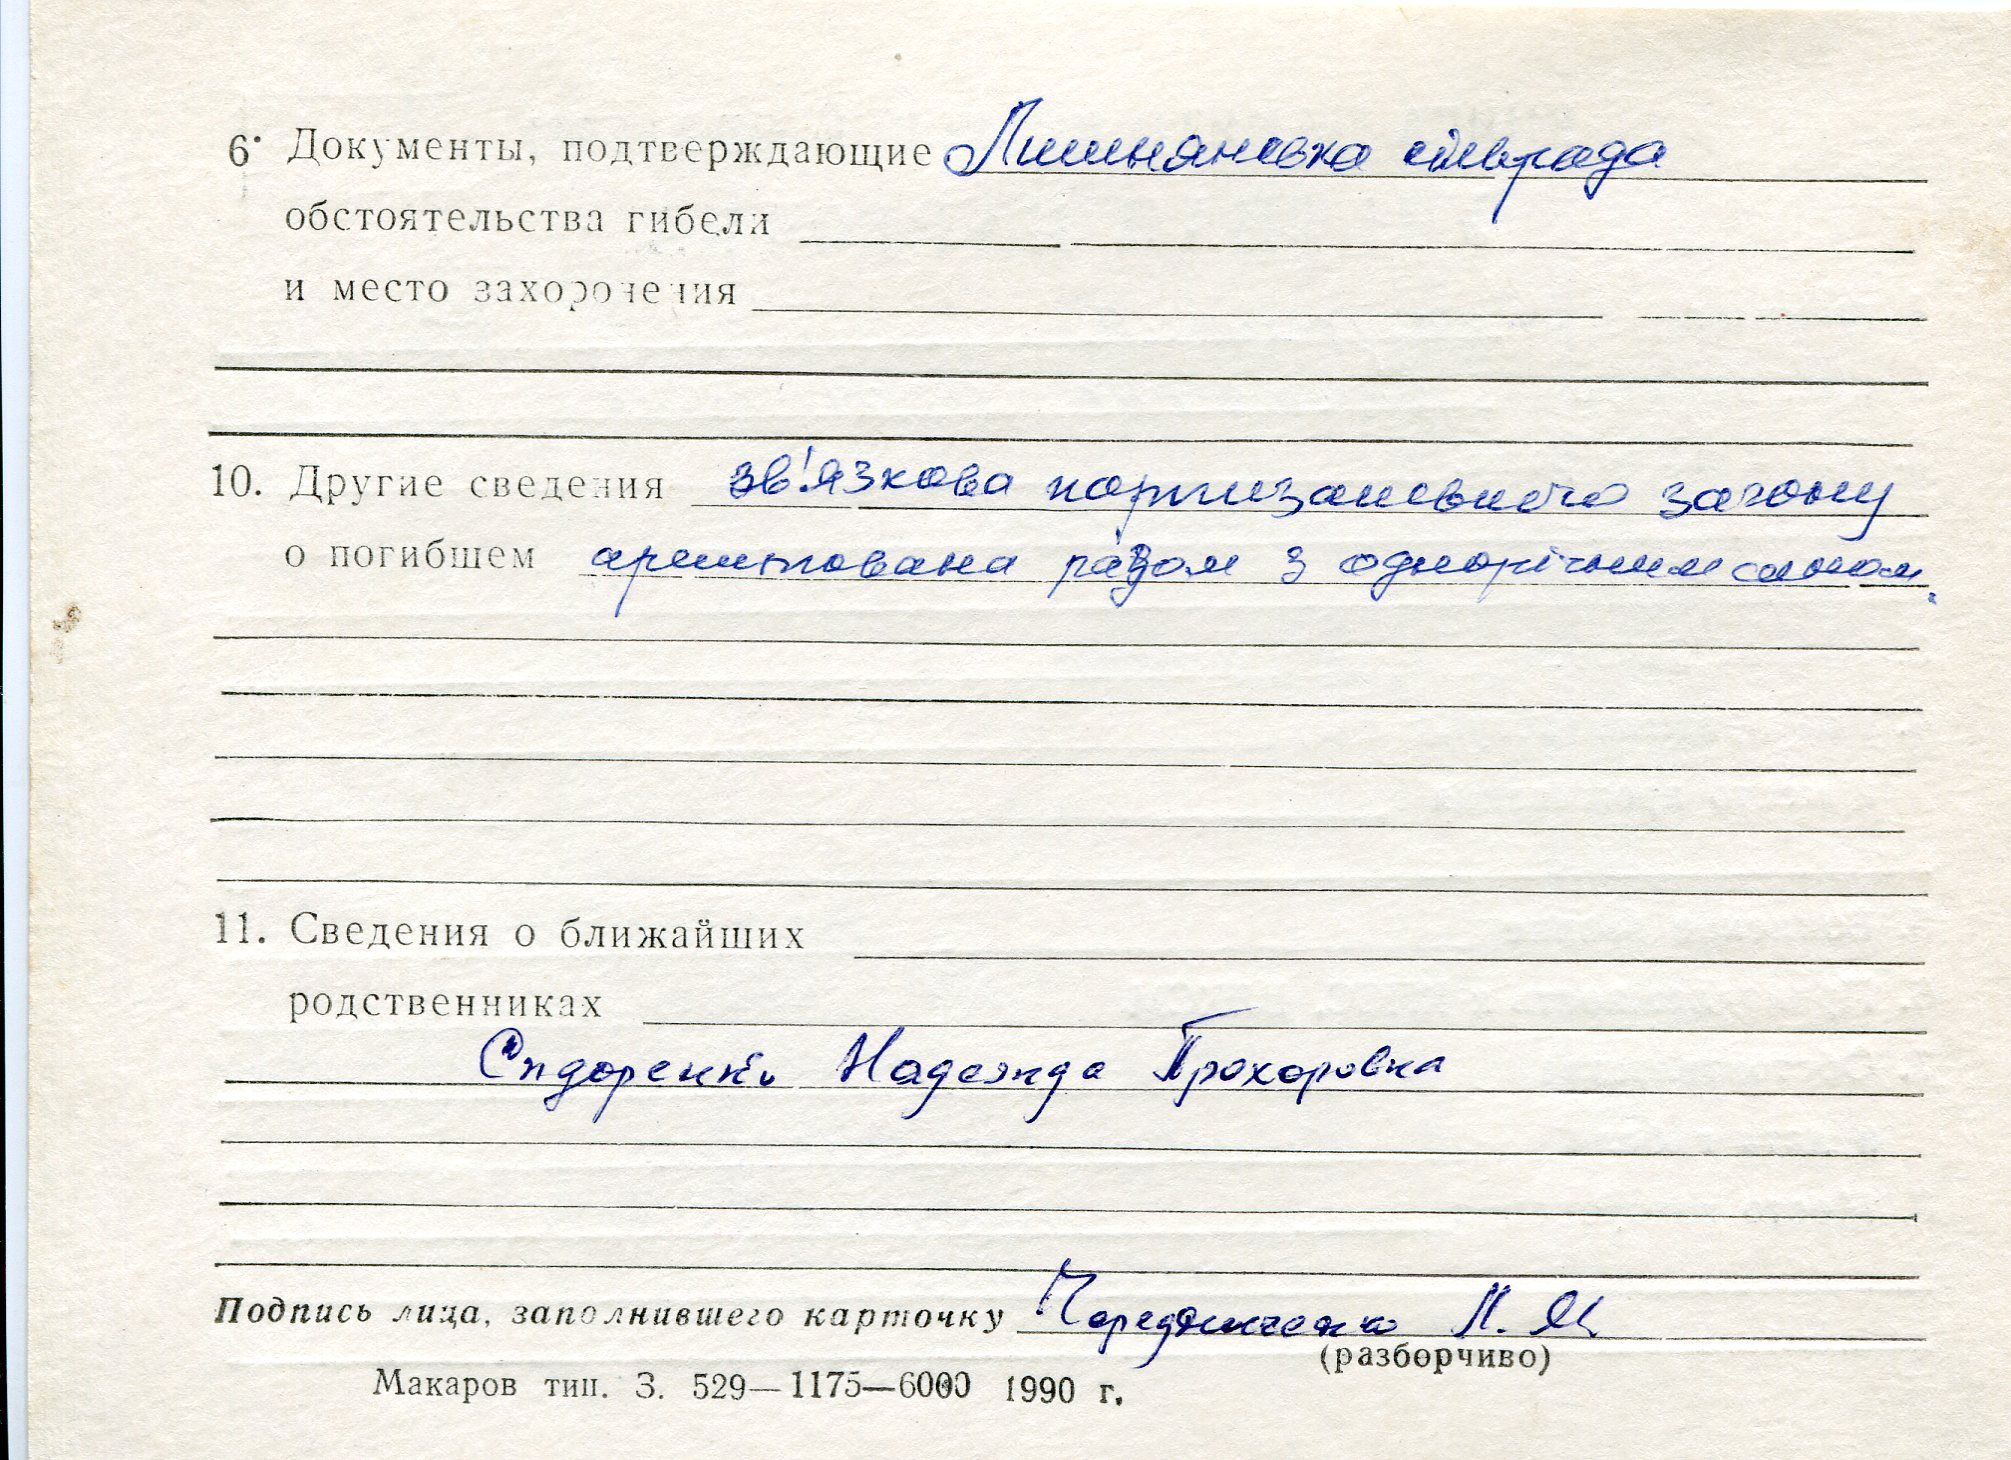 6. Документы, подтверждающие Липнянська сільрада
обстоятельства гибели
и место захоронения
10. Другие сведения зв'язкова партизанського загону
о погибшем арештована разом з однорічним сином.
11. Сведения о ближайших
родственниках
Сидоренко Надежда Прохоровна
Подпись лица, заполнившего карточку Чередниченко М.
(разборчиво)
Макаров тип. З. 529—1175—6000 1990 г.